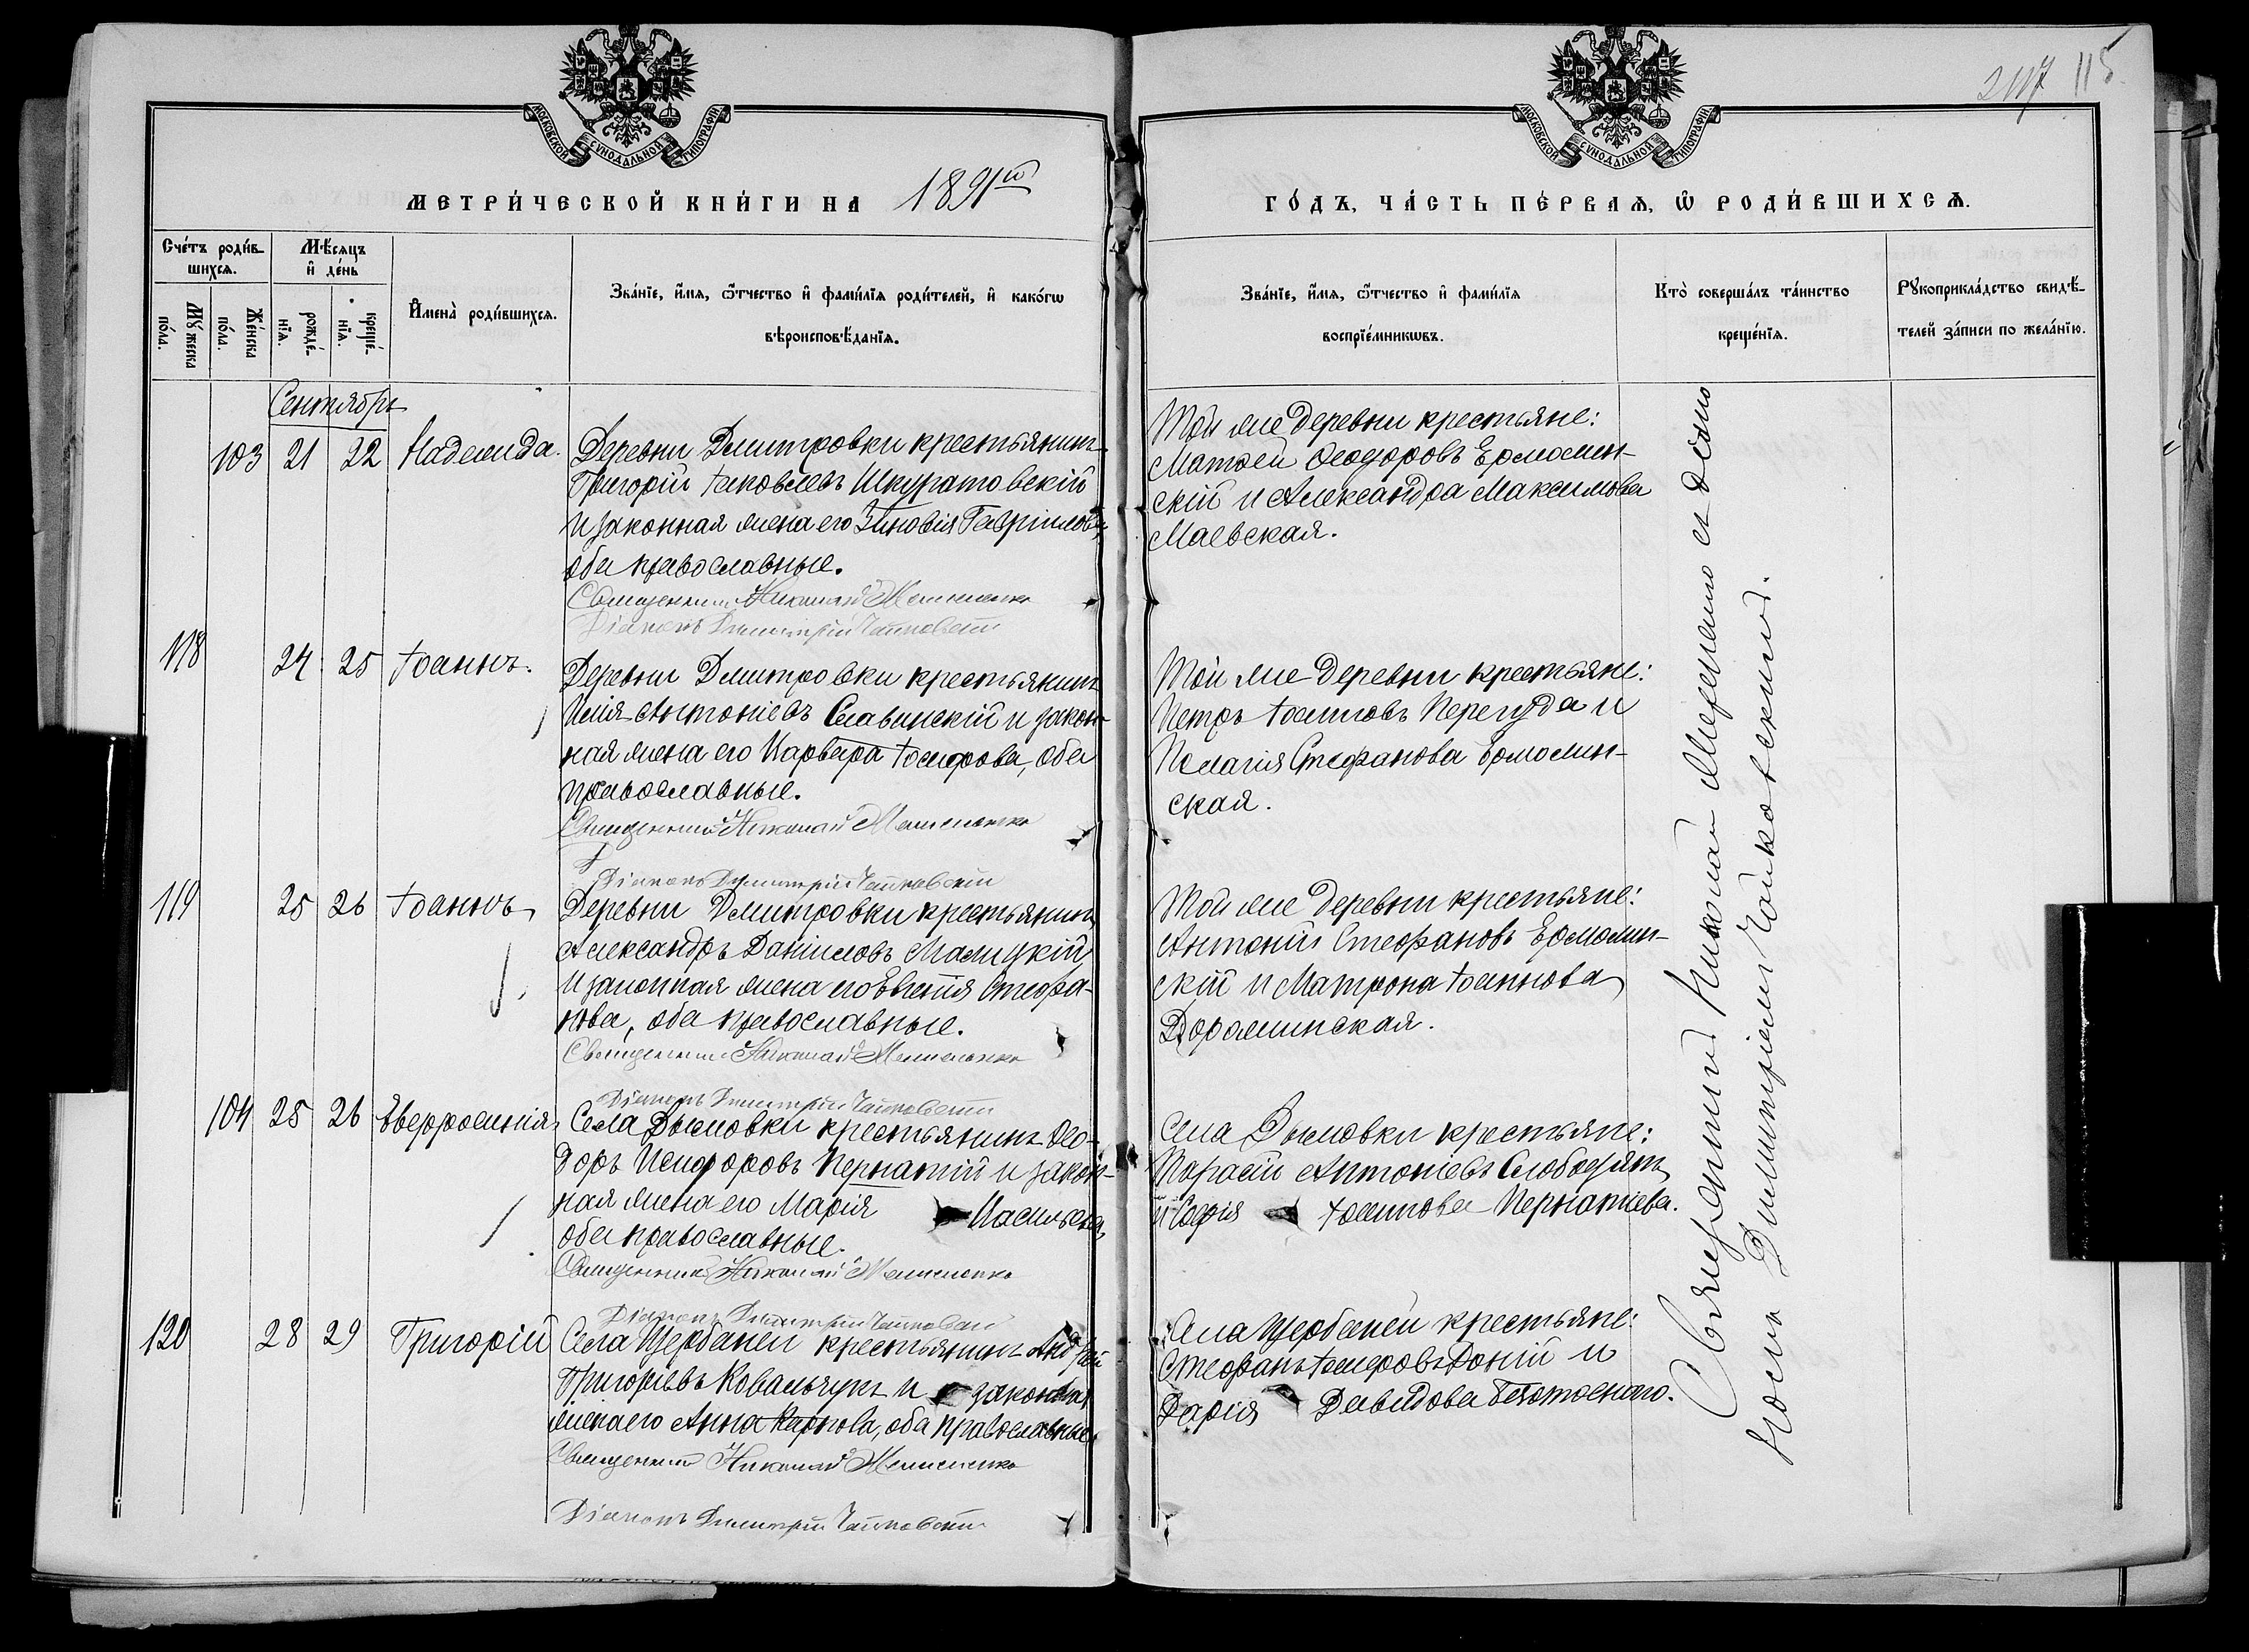 247 115
МОСКОВСКОЙ СѴНОДАЛЬНОЙ ТИПОГРАФІИ
МОСКОВСКОЙ СѴНОДАЛЬНОЙ ТИПОГРАФІИ
МЕТРИ́ЧЕСКОЙ КНИ́ГИ НА 1891й
ГО́ДЪ, ЧА́СТЬ ПЕ́РВАѦ, Ѡ РОДИ́ВШИХСѦ.
Сче́тъ роди́в-
шихсѧ.
Мѣ́сѧцъ
и҆ де́нь
Му́жеска
по́ла.
Же́нска
по́ла.
рожде́-
нїѧ.
креще́-
нїѧ.
И҆мена̀ роди́вшихсѧ.
Зва́нїе, и҆́мѧ, ѻ҆́тчество и҆ фами́лїѧ роди́телей, и҆ како́гѡ
вѣроисповѣ́данїѧ.
Зва́нїе, и҆́мѧ, ѻ҆́тчество и҆ фами́лїѧ
воспрїе́мникѡвъ.
Кто̀ соверша́лъ та́инство
креще́нїѧ.
Рꙋкоприкла́дство свидѣ́-
телей за́писи по жела́нїю.
Сентябрь
103 21 22 Надежда.
Деревни Дмитровки крестьянинъ
Григорій Іаковлевъ Шкуратовскій
и законная жена его Зиновія Гавріилова,
оба православные.
Священникъ Николай
Діаконъ Димитрій Чайковскій
Той же деревни крестьяне:
Матѳей Ѳеодоровъ Ермолин-
скій и Александра Максимова
Маевская.
118 24 25 Іоаннъ.
Деревни Дмитровки крестьянинъ
Илія Антоніевъ Славинскій и закон-
ная жена его Варвара Іосифова, оба
православные.
Священникъ Николай
Діаконъ Димитрій Чайковскій
Той же деревни крестьяне:
Петръ Іосиповъ Перегуда и
Пелагія Стефанова Ермолин-
ская.
119 25 26 Іоаннъ
Деревни Дмитровки крестьянинъ
Александръ Даніиловъ Малицкій
и законная жена его Евгенія Стефа-
нова, оба православные.
Священникъ Николай
Діаконъ Димитрій Чайковскій
Той же деревни крестьяне:
Антоній Стефановъ Ермолин-
скій и Матрона Іоаннова
104 25 26 Евфросинія
Села Дымовки крестьянинъ Ѳео-
доръ Никифоровъ Пернатій и закон-
ная жена его Марія Васильева,
оба православные.
Священникъ Николай
Діаконъ Димитрій Чайковскій
Села Дымовки крестьяне:
Тарасій Антоніевъ Слободянъ
и Софія Іосипова Пернатіева.
120 28 29 Григорій
Села Щербаней крестьянинъ Андрей
Григорьевъ Ковальчукъ и законная
жена его Анна Карпова, оба православные.
Священникъ Николай
Діаконъ Димитрій Чайковскій
Села Щербаней крестьяне:
Стефанъ Іосифовъ Доній и
Дарія Давидова
Священникъ Николай
Димитріемъ Чайковскимъ.